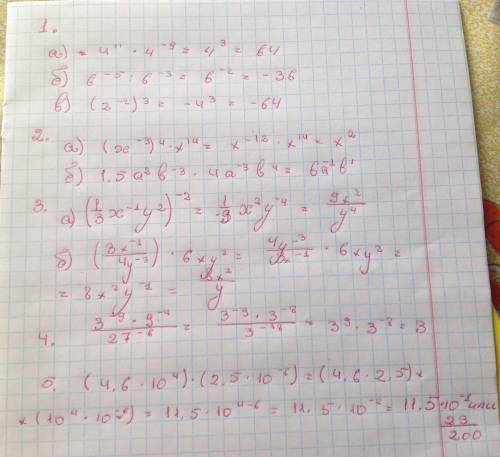 1.
а) = 4¹¹ · 4⁻⁹ = 4³ = 64
б) 6⁻⁵ · 6⁻³ = 6⁻² = -36
в) (2⁻²)³ = -4³ = -64
2. а) (x⁻³)⁴ · x¹⁴ = x⁻¹² · x¹⁴ = x²
б) 1,5 a² b⁻³ · 4a⁻³ b⁴ = 6a⁻¹b¹
3. а) (1/3 x⁻¹y²)⁻² = 1/-9 x²y⁻⁴ = 9x²/y⁴
б) (3x⁻¹/4y⁻³) · 6xy² = 4y⁻³/3x⁻¹ · 6xy² =
= 8x²y⁻¹ = 8x²/y
4. 3⁻⁹ · 9⁻⁴/27⁻⁶ = 3⁻⁹ · 3⁻⁸/3⁻¹⁸ = 3⁹ · 3⁻⁸ = 3
5. (4,6 · 10⁴) · (2,5 · 10⁻⁶) = (4,6 · 2,5) ×
× (10⁴ · 10⁻⁶) = 11,5 · 10⁴⁻⁶ = 11,5 · 10⁻² = 11,5 · 10⁻¹ или
23/200